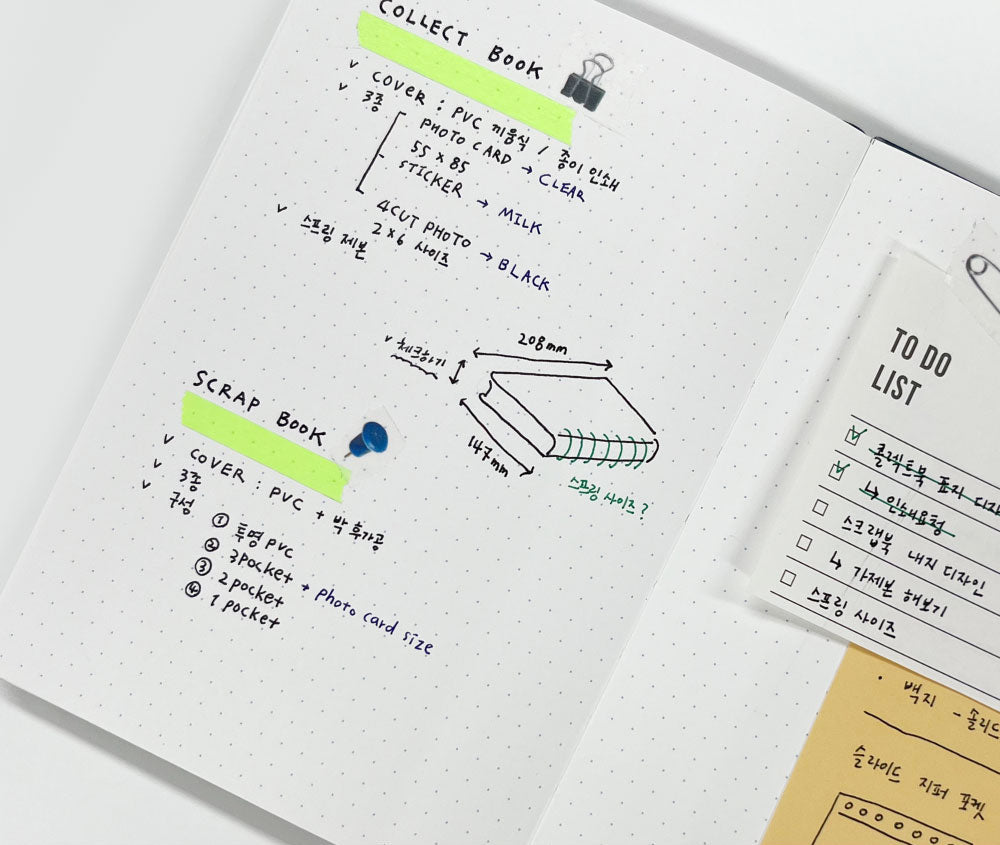 COLLECT BOOK
✓ COVER : PVC 끼움식 / 종이 인쇄
✓ 3종
PHOTO CARD → CLEAR
55 x 85
STICKER → MILK
4CUT PHOTO → BLACK
2 x 6 사이즈
✓ 스프링 제본
✓ 체크하기
208mm
147mm
스프링 사이즈?
SCRAP BOOK
✓ COVER : PVC + 박 후가공
✓ 3종
✓ 구성
① 투명 PVC
② 3pocket → photo card size
③ 2pocket
④ 1 pocket
TO DO
LIST
☑ 콜렉트북 표지 디자
☑ ↳ 인쇄요청
☐ 스크랩북 내지 디자인
☐ ↳ 가제본 해보기
☐ 스프링 사이즈
· 백지 - 솔리드
슬라이드 지퍼 포켓